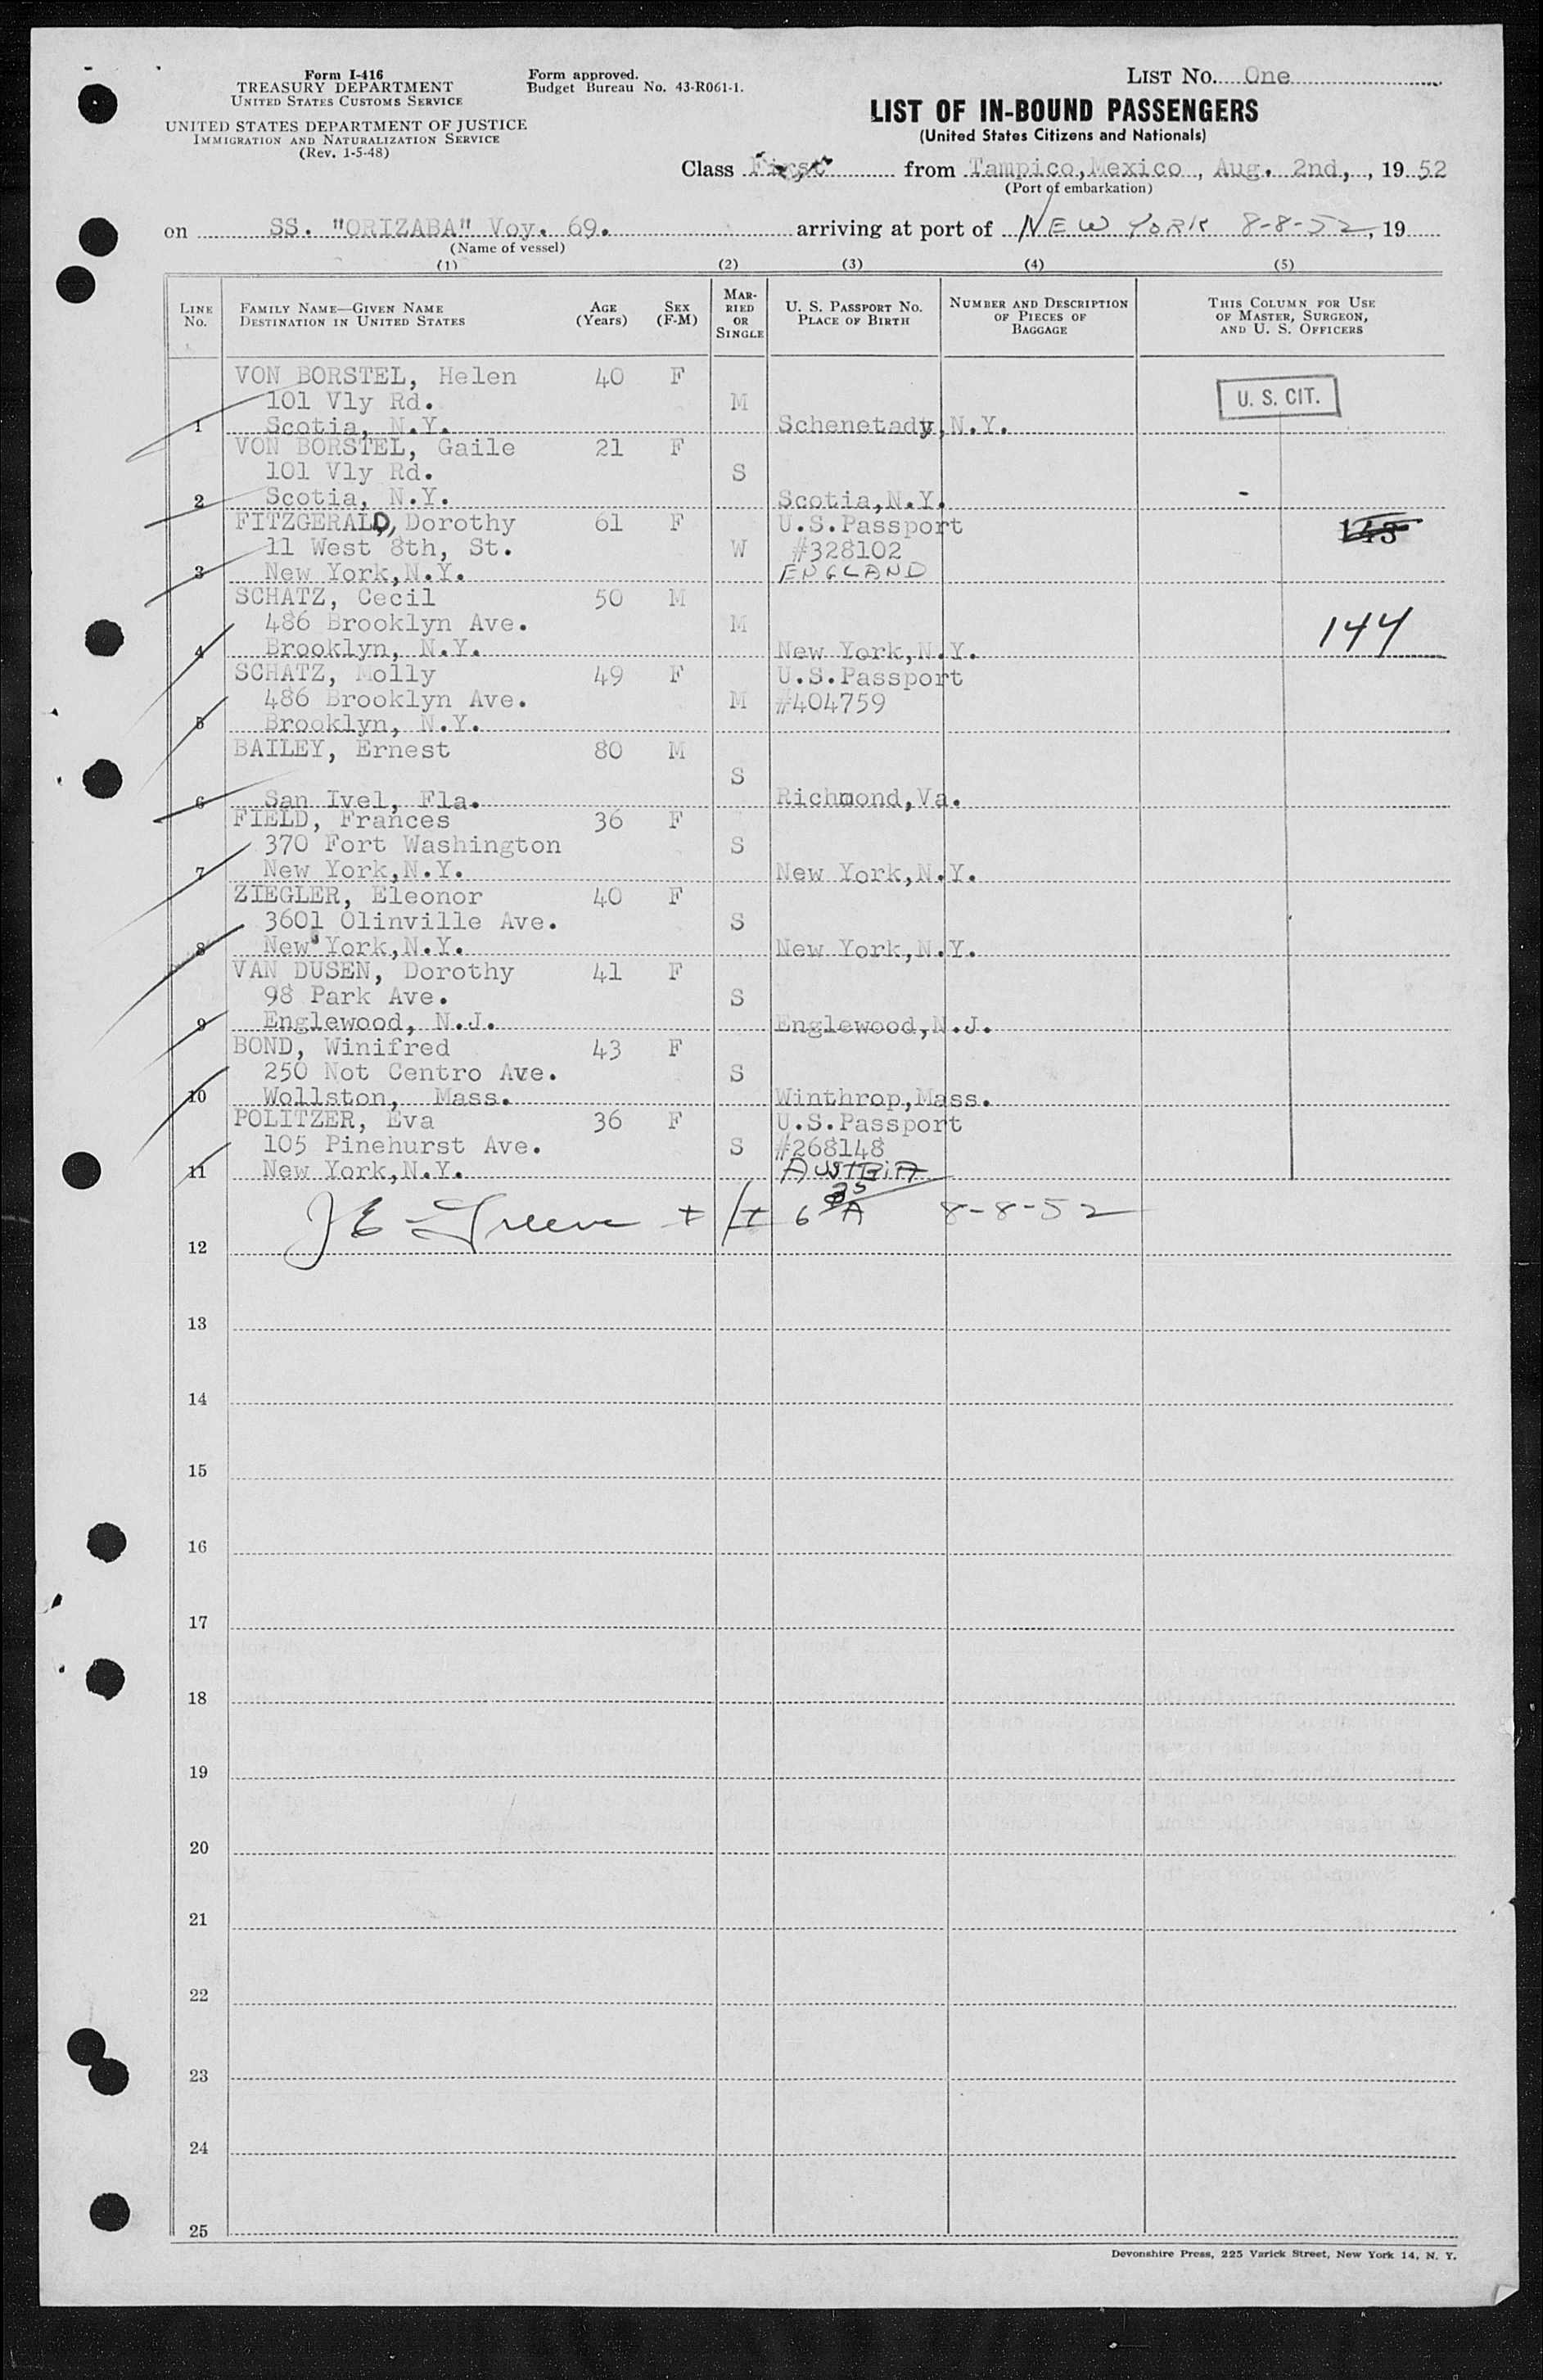 Form I-416
TREASURY DEPARTMENT
UNITED STATES CUSTOMS SERVICE
UNITED STATES DEPARTMENT OF JUSTICE
IMMIGRATION AND NATURALIZATION SERVICE
(Rev. 1-5-48)
Form approved.
Budget Bureau No. 43-R061-1.
LIST No. One
LIST OF IN-BOUND PASSENGERS
(United States Citizens and Nationals)
Class First from Tampico,Mexico, Aug. 2nd, , 19 52
(Port of embarkation)
on SS. "ORIZABA" Voy. 69. arriving at port of NEW YORK 8-8-52, 19
(Name of vessel)
(1) (2) (3) (4) (5)
LINE No.
FAMILY NAME—GIVEN NAME
DESTINATION IN UNITED STATES
AGE (Years)
SEX (F-M)
MARRIED OR SINGLE
U. S. PASSPORT No.
PLACE OF BIRTH
NUMBER AND DESCRIPTION OF PIECES OF BAGGAGE
THIS COLUMN FOR USE OF MASTER, SURGEON, AND U. S. OFFICERS
VON BORSTEL, Helen 40 F
101 Vly Rd. M U. S. CIT.
1 Scotia, N.Y. Schenetady,N.Y.
VON BORSTEL, Gaile 21 F
101 Vly Rd. S
2 Scotia, N.Y. Scotia,N.Y.
FITZGERALD, Dorothy 61 F U.S.Passport 143
11 West 8th, St. W #328102
3 New York,N.Y. ENGLAND
SCHATZ, Cecil 50 M
486 Brooklyn Ave. M 144
4 Brooklyn, N.Y. New York,N.Y.
SCHATZ, Molly 49 F U.S.Passport
486 Brooklyn Ave. M #404759
5 Brooklyn, N.Y.
BAILEY, Ernest 80 M
S
6 San Ivel, Fla. Richmond,Va.
FIELD, Frances 36 F
370 Fort Washington S
7 New York,N.Y. New York,N.Y.
ZIEGLER, Eleonor 40 F
3601 Olinville Ave. S
8 New York,N.Y. New York,N.Y.
VAN DUSEN, Dorothy 41 F
98 Park Ave. S
9 Englewood, N.J. Englewood,N.J.
BOND, Winifred 43 F
250 Not Centro Ave. S
10 Wollston, Mass. Winthrop,Mass.
POLITZER, Eva 36 F U.S.Passport
105 Pinehurst Ave. S #268148
11 New York,N.Y. AUSTRIA
J E Greene 8-8-52
12
13
14
15
16
17
18
19
20
21
22
23
24
25
Devonshire Press, 225 Varick Street, New York 14, N. Y.